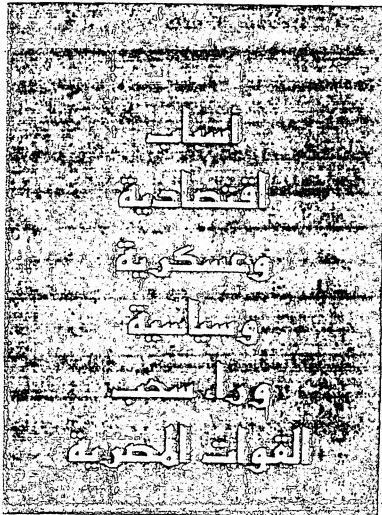 أسباب
اقتصادية
وعسكرية
وسياسية
وراء سحب
القوات المصرية